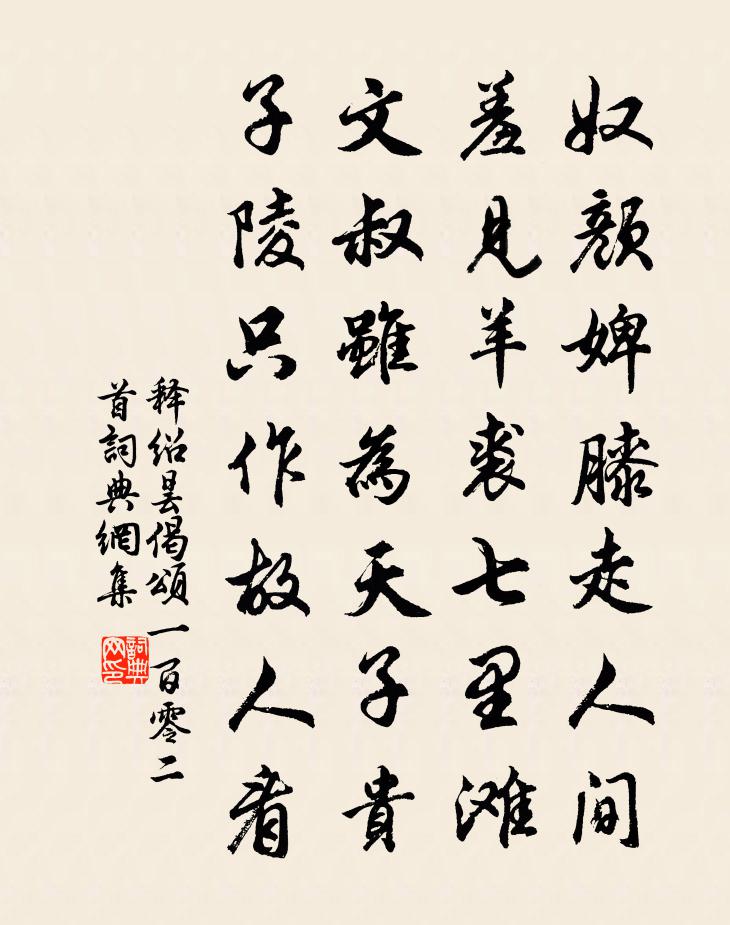 奴颜婢膝走人间
羞见羊裘七里滩
文叔雖為天子貴
子陵只作故人看
释绍昙偈頌一百零二
首詞典網集
詞典网印